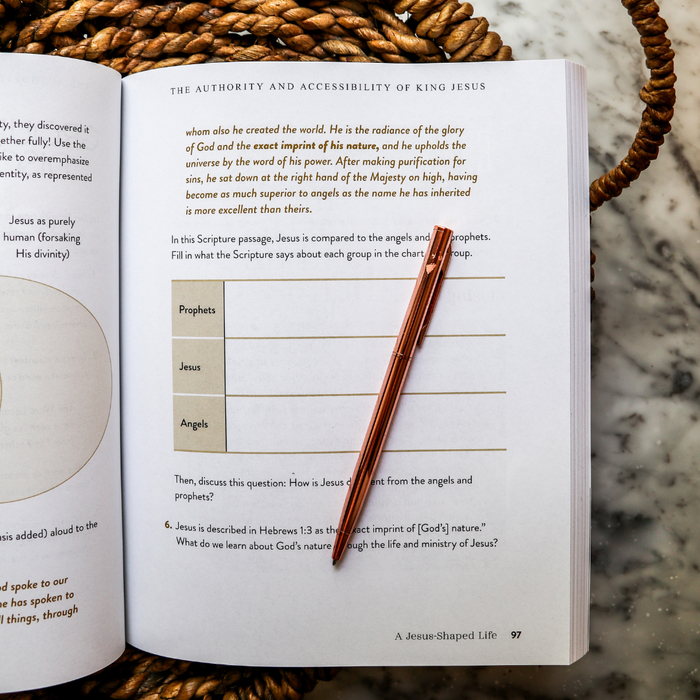 ty, they discovered it
ether fully! Use the
ike to overemphasize
entity, as represented
Jesus as purely
human (forsaking
His divinity)
sis added) aloud to the
d spoke to our
he has spoken to
ll things, through
THE AUTHORITY AND ACCESSIBILITY OF KING JESUS
whom also he created the world. He is the radiance of the glory
of God and the exact imprint of his nature, and he upholds the
universe by the word of his power. After making purification for
sins, he sat down at the right hand of the Majesty on high, having
become as much superior to angels as the name he has inherited
is more excellent than theirs.
In this Scripture passage, Jesus is compared to the angels and prophets.
Fill in what the Scripture says about each group in the chart group.
Prophets
Jesus
Angels
Then, discuss this question: How is Jesus different from the angels and
prophets?
6. Jesus is described in Hebrews 1:3 as the "exact imprint of [God's] nature."
What do we learn about God's nature through the life and ministry of Jesus?
A Jesus-Shaped Life 97